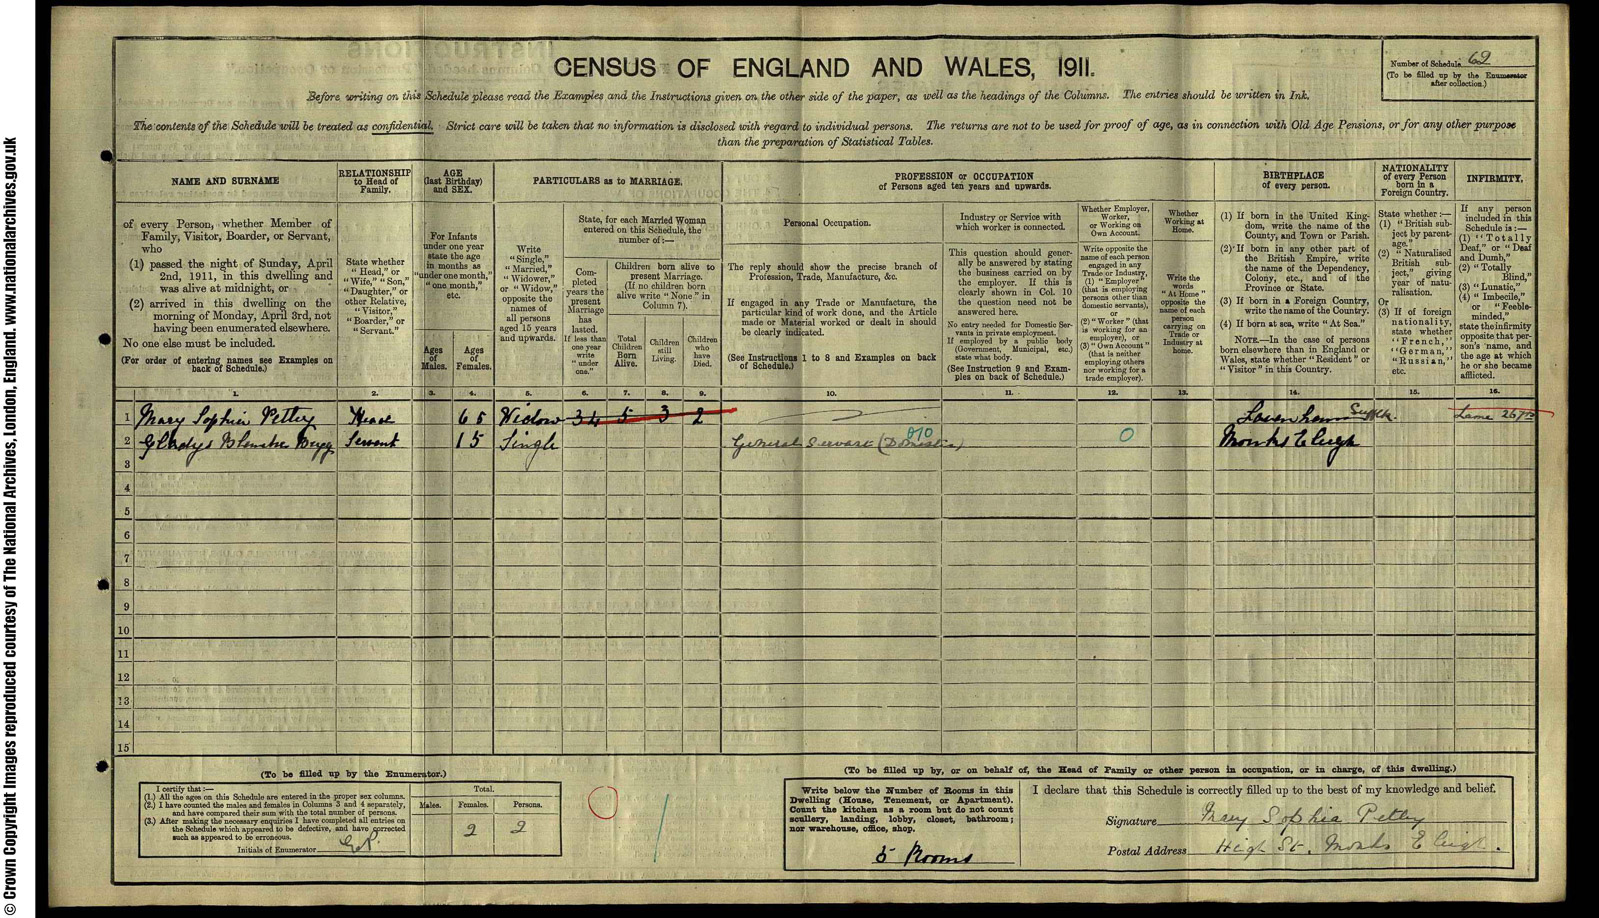 CENSUS OF ENGLAND AND WALES, 1911.
Number of Schedule 62
(To be filled up by the Enumerator
after collection.)
Before writing on this Schedule please read the Examples and the Instructions given on the other side of the paper, as well as the headings of the Columns. The entries should be written in Ink.
The contents of the Schedule will be treated as confidential. Strict care will be taken that no information is disclosed with regard to individual persons. The returns are not to be used for proof of age, as in connection with Old Age Pensions, or for any other purpose
than the preparation of Statistical Tables.
NAME AND SURNAME
of every Person, whether Member of
Family, Visitor, Boarder, or Servant,
who
(1) passed the night of Sunday, April
2nd, 1911, in this dwelling and
was alive at midnight, or
(2) arrived in this dwelling on the
morning of Monday, April 3rd, not
having been enumerated elsewhere.
No one else must be included.
(For order of entering names see Examples on
back of Schedule.)
RELATIONSHIP
to Head of
Family.
State whether
"Head," or
"Wife," "Son,"
"Daughter," or
other Relative,
"Visitor,"
"Boarder," or
"Servant."
AGE
(last Birthday)
and SEX.
For Infants
under one year
state the age
in months as
"under one month,"
"one month,"
etc.
Ages
of
Males.
Ages
of
Females.
PARTICULARS as to MARRIAGE.
Write
"Single,"
"Married,"
"Widower,"
or "Widow,"
opposite the
names of
all persons
aged 15 years
and upwards.
State, for each Married Woman
entered on this Schedule, the
number of:—
Completed
years the
present
Marriage
has
lasted.
If less than
one year
write
"under
one."
Children born alive to
present Marriage.
(If no children born
alive write "None" in
Column 7).
Total
Children
Born
Alive.
Children
still
Living.
Children
who
have
Died.
PROFESSION or OCCUPATION
of Persons aged ten years and upwards.
Personal Occupation.
The reply should show the precise branch of
Profession, Trade, Manufacture, &c.
If engaged in any Trade or Manufacture, the
particular kind of work done, and the Article
made or Material worked or dealt in should
be clearly indicated.
(See Instructions 1 to 8 and Examples on back
of Schedule.)
Industry or Service with
which worker is connected.
This question should generally
be answered by stating
the business carried on by
the employer. If this is
clearly shown in Col. 10
the question need not be
answered here.
No entry needed for Domestic Servants
in private employment.
If employed by a public body
(Government, Municipal, etc.)
state what body.
(See Instruction 9 and Examples
on back of Schedule.)
Whether Employer,
Worker,
or Working on
Own Account.
Write opposite the
name of each person
engaged in any
Trade or Industry,
(1) "Employer"
(that is employing
persons other than
domestic servants),
or
(2) "Worker" (that
is working for an
employer), or
(3) "Own Account"
(that is neither
employing others
nor working for a
trade employer).
Whether
Working at
Home.
Write the
words
"At Home"
opposite the
name of each
person
carrying on
Trade or
Industry at
home.
BIRTHPLACE
of every person.
(1) If born in the United Kingdom,
write the name of the
County, and Town or Parish.
(2) If born in any other part of
the British Empire, write
the name of the Dependency,
Colony, etc., and of the
Province or State.
(3) If born in a Foreign Country,
write the name of the Country.
(4) If born at sea, write "At Sea."
NOTE.—In the case of persons
born elsewhere than in England or
Wales, state whether "Resident" or
"Visitor" in this Country.
NATIONALITY
of every Person
born in a
Foreign Country.
State whether:—
(1) "British subject
by parentage."
(2) "Naturalised
British subject,"
giving
year of naturalisation.
Or
(3) If of foreign
nationality,
state whether
"French,"
"German,"
"Russian,"
etc.
INFIRMITY.
If any person
included in this
Schedule is:—
(1) "Totally
Deaf," or "Deaf
and Dumb,"
(2) "Totally
Blind,"
(3) "Lunatic,"
(4) "Imbecile,"
or "Feeble-minded,"
state the infirmity
opposite that person's
name, and
the age at which
he or she became
afflicted.
1. 2. 3. 4. 5. 6. 7. 8. 9. 10. 11. 12. 13. 14. 15. 16.
1 Mary Sophia Pettey Head 65 Widow 34 5 3 2 Lavenham Suffolk Lame 26 yrs
2 Gladys Blanche Servant 15 Single General Servant (Domestic) 0 Monks Eleigh
3
4
5
6
7
8
9
10
11
12
13
14
15
(To be filled up by the Enumerator.)
I certify that:—
(1.) All the ages on this Schedule are entered in the proper sex columns.
(2.) I have counted the males and females in Columns 3 and 4 separately,
and have compared their sum with the total number of persons.
(3.) After making the necessary enquiries I have completed all entries on
the Schedule which appeared to be defective, and have corrected
such as appeared to be erroneous.
Initials of Enumerator
Total.
Males. Females. Persons.
2 2
(To be filled up by, or on behalf of, the Head of Family or other person in occupation, or in charge, of this dwelling.)
Write below the Number of Rooms in this
Dwelling (House, Tenement, or Apartment).
Count the kitchen as a room but do not count
scullery, landing, lobby, closet, bathroom;
nor warehouse, office, shop.
5 Rooms
I declare that this Schedule is correctly filled up to the best of my knowledge and belief.
Signature Mary Sophia Pettey
Postal Address High St. Monks Eleigh.
© Crown Copyright Images reproduced courtesy of The National Archives, London, England. www.nationalarchives.gov.uk